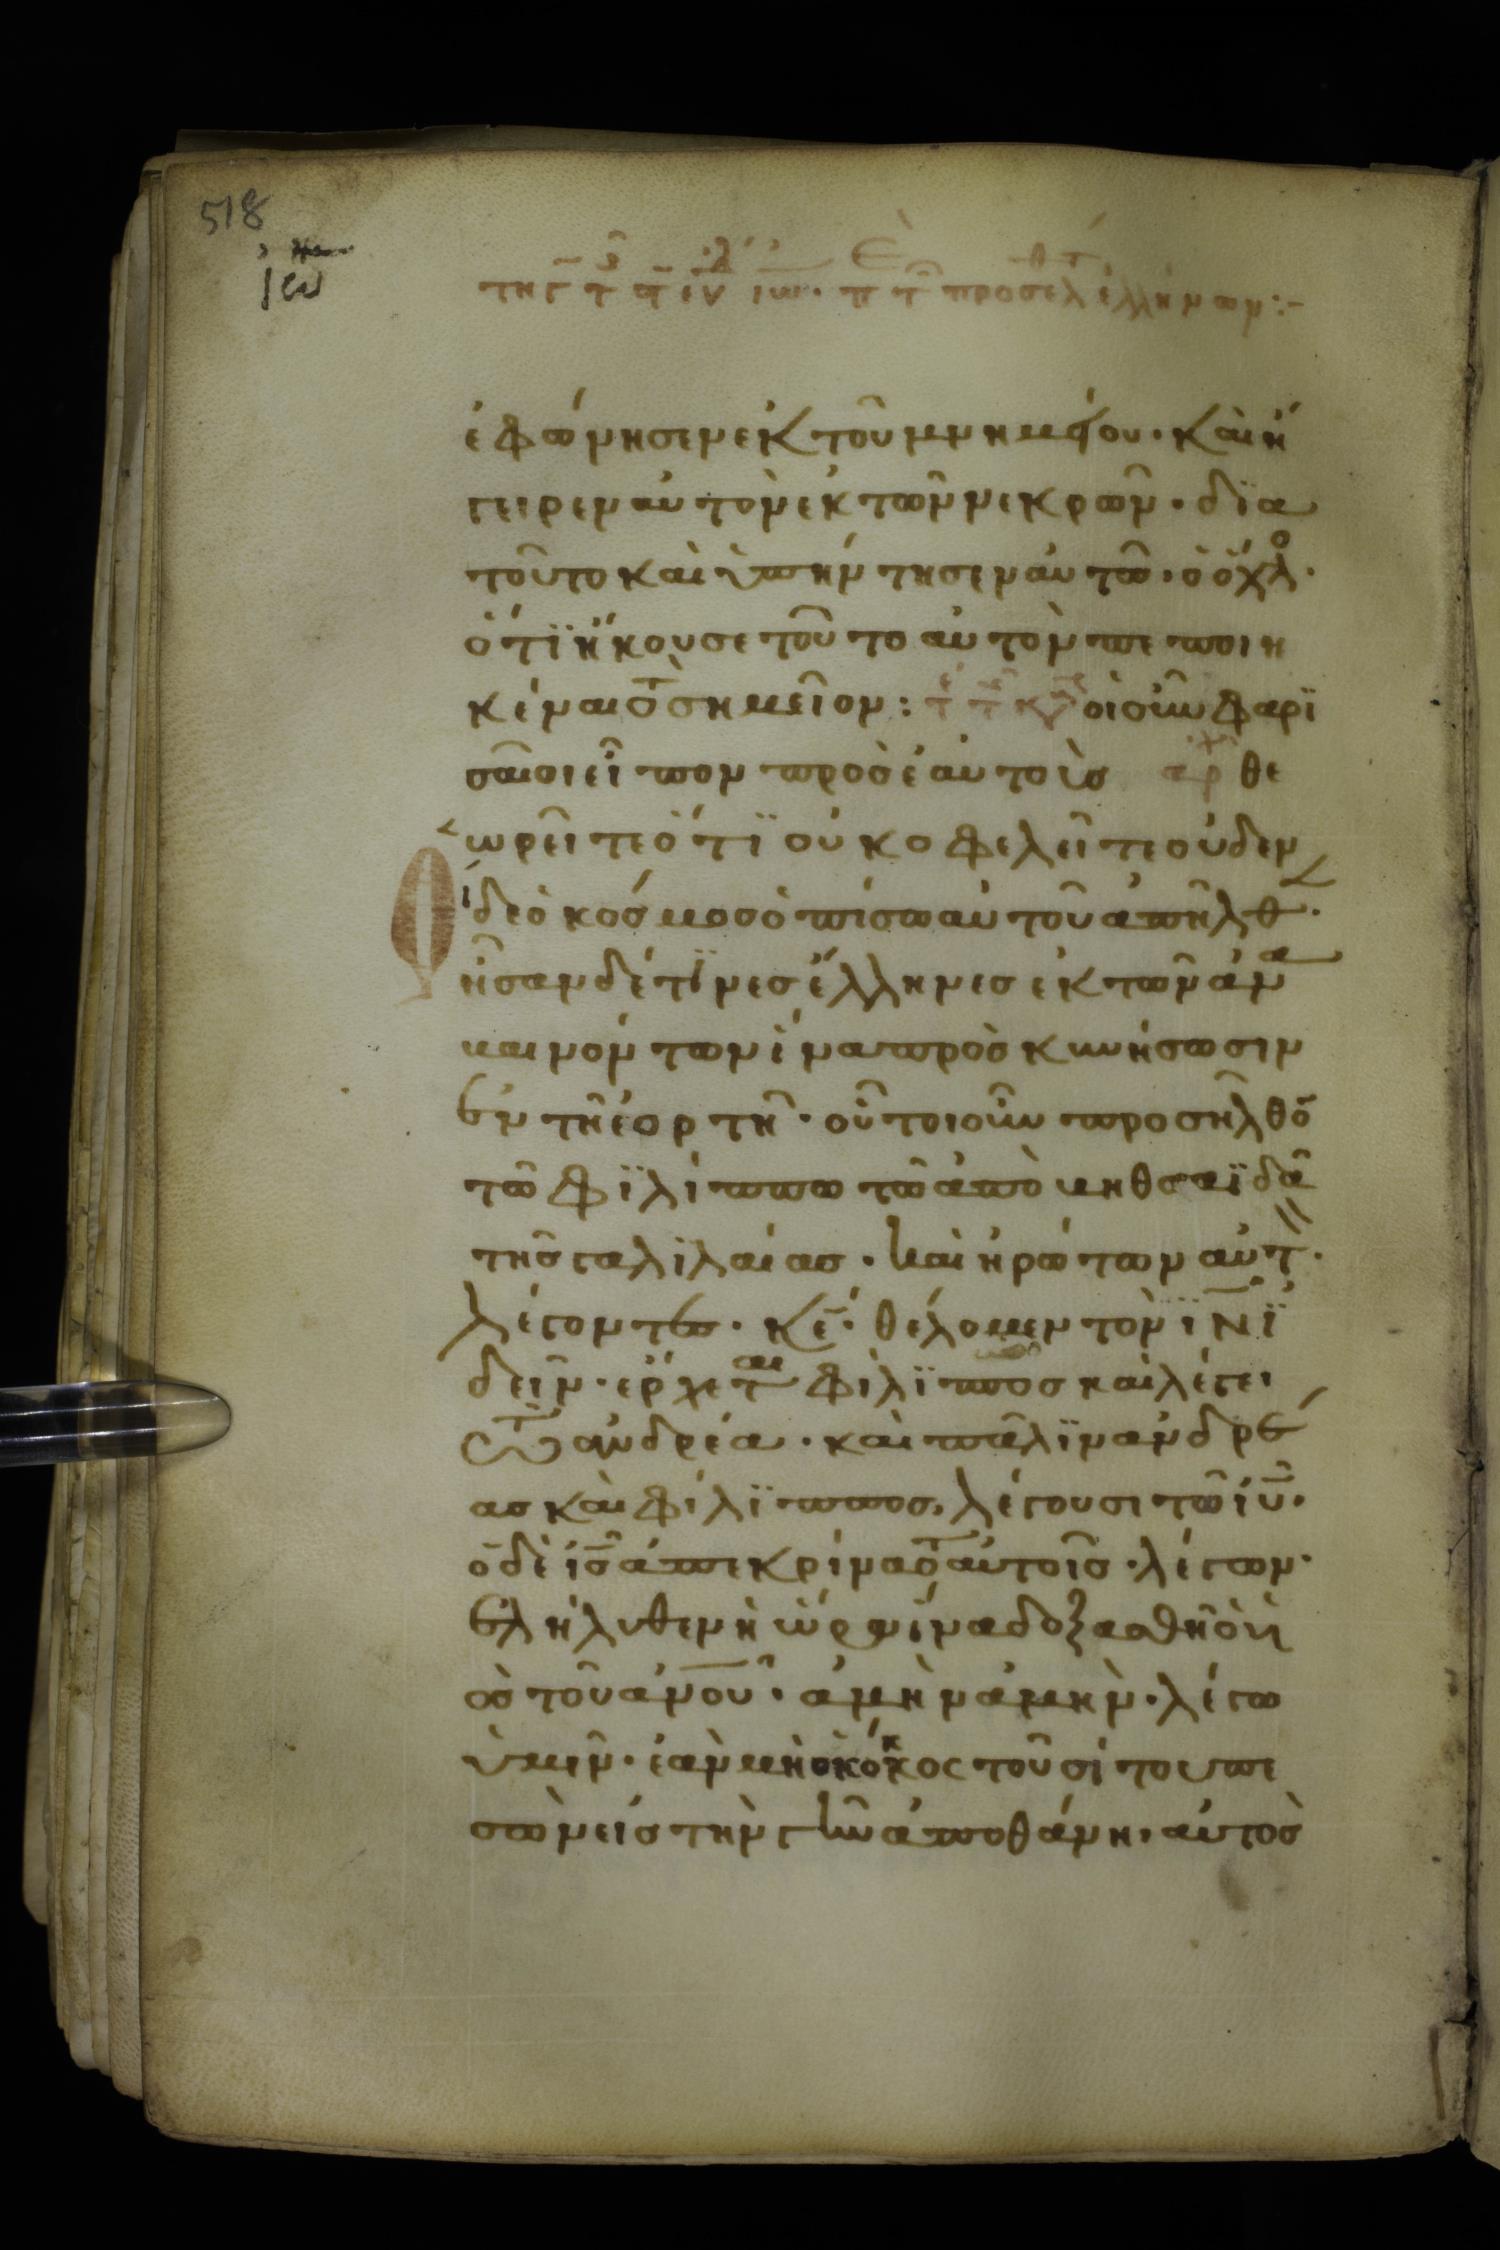 518
ἰω
ἐφώνησεν ἐκ τοῦ μνημείου · καὶ ἤ
γειρεν αὐτὸν ἐκ τῶν νεκρῶν · δϊα
τοῦτο καὶ ὑπήντησεν αὐτῶ · ὁ ὄχλο ·
ὅτϊ ἤκουσε τοῦτο αὐτὸν πεποιη
κέναι τὸ σημεῖον : οἱ οὖν φαρϊ
σαῖοι εἶπον πρὸς ἑαυτοὺς θε
ωρεῖτε ὅτϊ οὐκ οφελεῖτε οὐδὲν
ἴδε ὁ κόσμος ὀπίσω αὐτοῦ ἀπῆλθ ·
ἦσαν δέ τϊνες ἕλληνες ἐκ τῶν ἀνα
βαινόντων ἵνα προσκυνήσωσιν
ἐν τῆ ἑορτῆ · οὗτοι οὖν προσῆλθον
τῶ φϊλίππω τῶ ἀπὸ βηθσαϊδᾶ
τῆς γαλϊλαίας · καὶ ἠρώτων αὐτ ·
λέγοντες · κε · θέλομεν τὸν ιν ϊ
δεῖν · ἔρχεται φίλϊππος καὶ λέγει
τῶ ανδρέα · καὶ πάλϊν ἀνδρέ
ας καὶ φίλϊππος, λέγουσι τῶ ιυ ·
ὁ δὲ ις ἀπεκρίνατο αὐτοῖς · λέγων ·
ἐλήλυθεν ἡ ὥρα ἵνα δοξασθῆ ὁ υἱ
ὸς τοῦ ανου · ἀμὴν ἀμὴν · λέγω
ὑμῖν · ἐὰν μὴ ὁ κόκκος τοῦ σίτου πε
σὼν εἰς τὴν γῆν ἀποθάνη, αὐτὸς